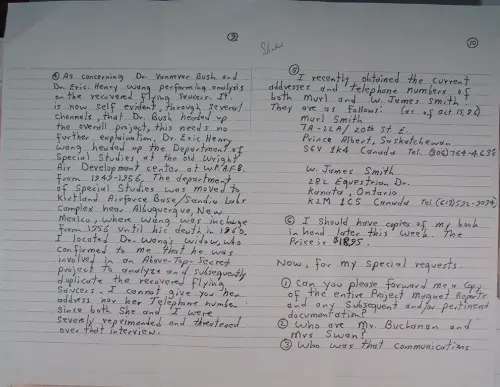 9
④ As concerning Dr. Vannevar Bush and
Dr. Eric Henry Wang performing analysis
on the recovered flying saucers. It
is now self evident, through several
channels, that Dr. Bush headed up
the overall project, this needs no
further explanation. Dr. Eric Henry
Wang headed up the Department of
Special Studies, at the old Wright
Air Development center at W.P.A.F.B.
from 1949-1956. The department
of Special Studies was moved to
Kirtland Airforce Base/Sandia Labs
Complex near Albuquerque, New
Mexico, where Wang was incharge
from 1956 until his death in 1960.
I located Dr. Wang's widow, who
confirmed to me that he was
involved in an Above-Top-Secret
project to analyze and subsequently
duplicate the recovered flying
saucers. I cannot give you her
address nor her Telephone number
since both she and I were
severly reprimanded and threatened
over that interview.
10
⑤ I recently obtained the current
addresses and telephone numbers of
both Murl and W. James Smith.
They are as follows: (as of Oct 15, 86)
Murl Smith
7A-22A/ 20th St E.
Prince Albert, Saskatchewan
S6V 1K4 Canada Tel. (306) 764-4638
W. James Smith
282 Equestrian Dr.
Kanata, Ontario
K2M 1C5 Canada Tel. (613) 592-
⑥ I should have copies of my book
in hand later this week. The
Price is $18.95.
Now, for my special requests.
① Can you please forward me a copy
of the entire Project Magnet Reports
and any subsequent and/or pertinent
documentation?
② Who are Mr. Buchanan and
Mrs Swan?
③ Who was that communications